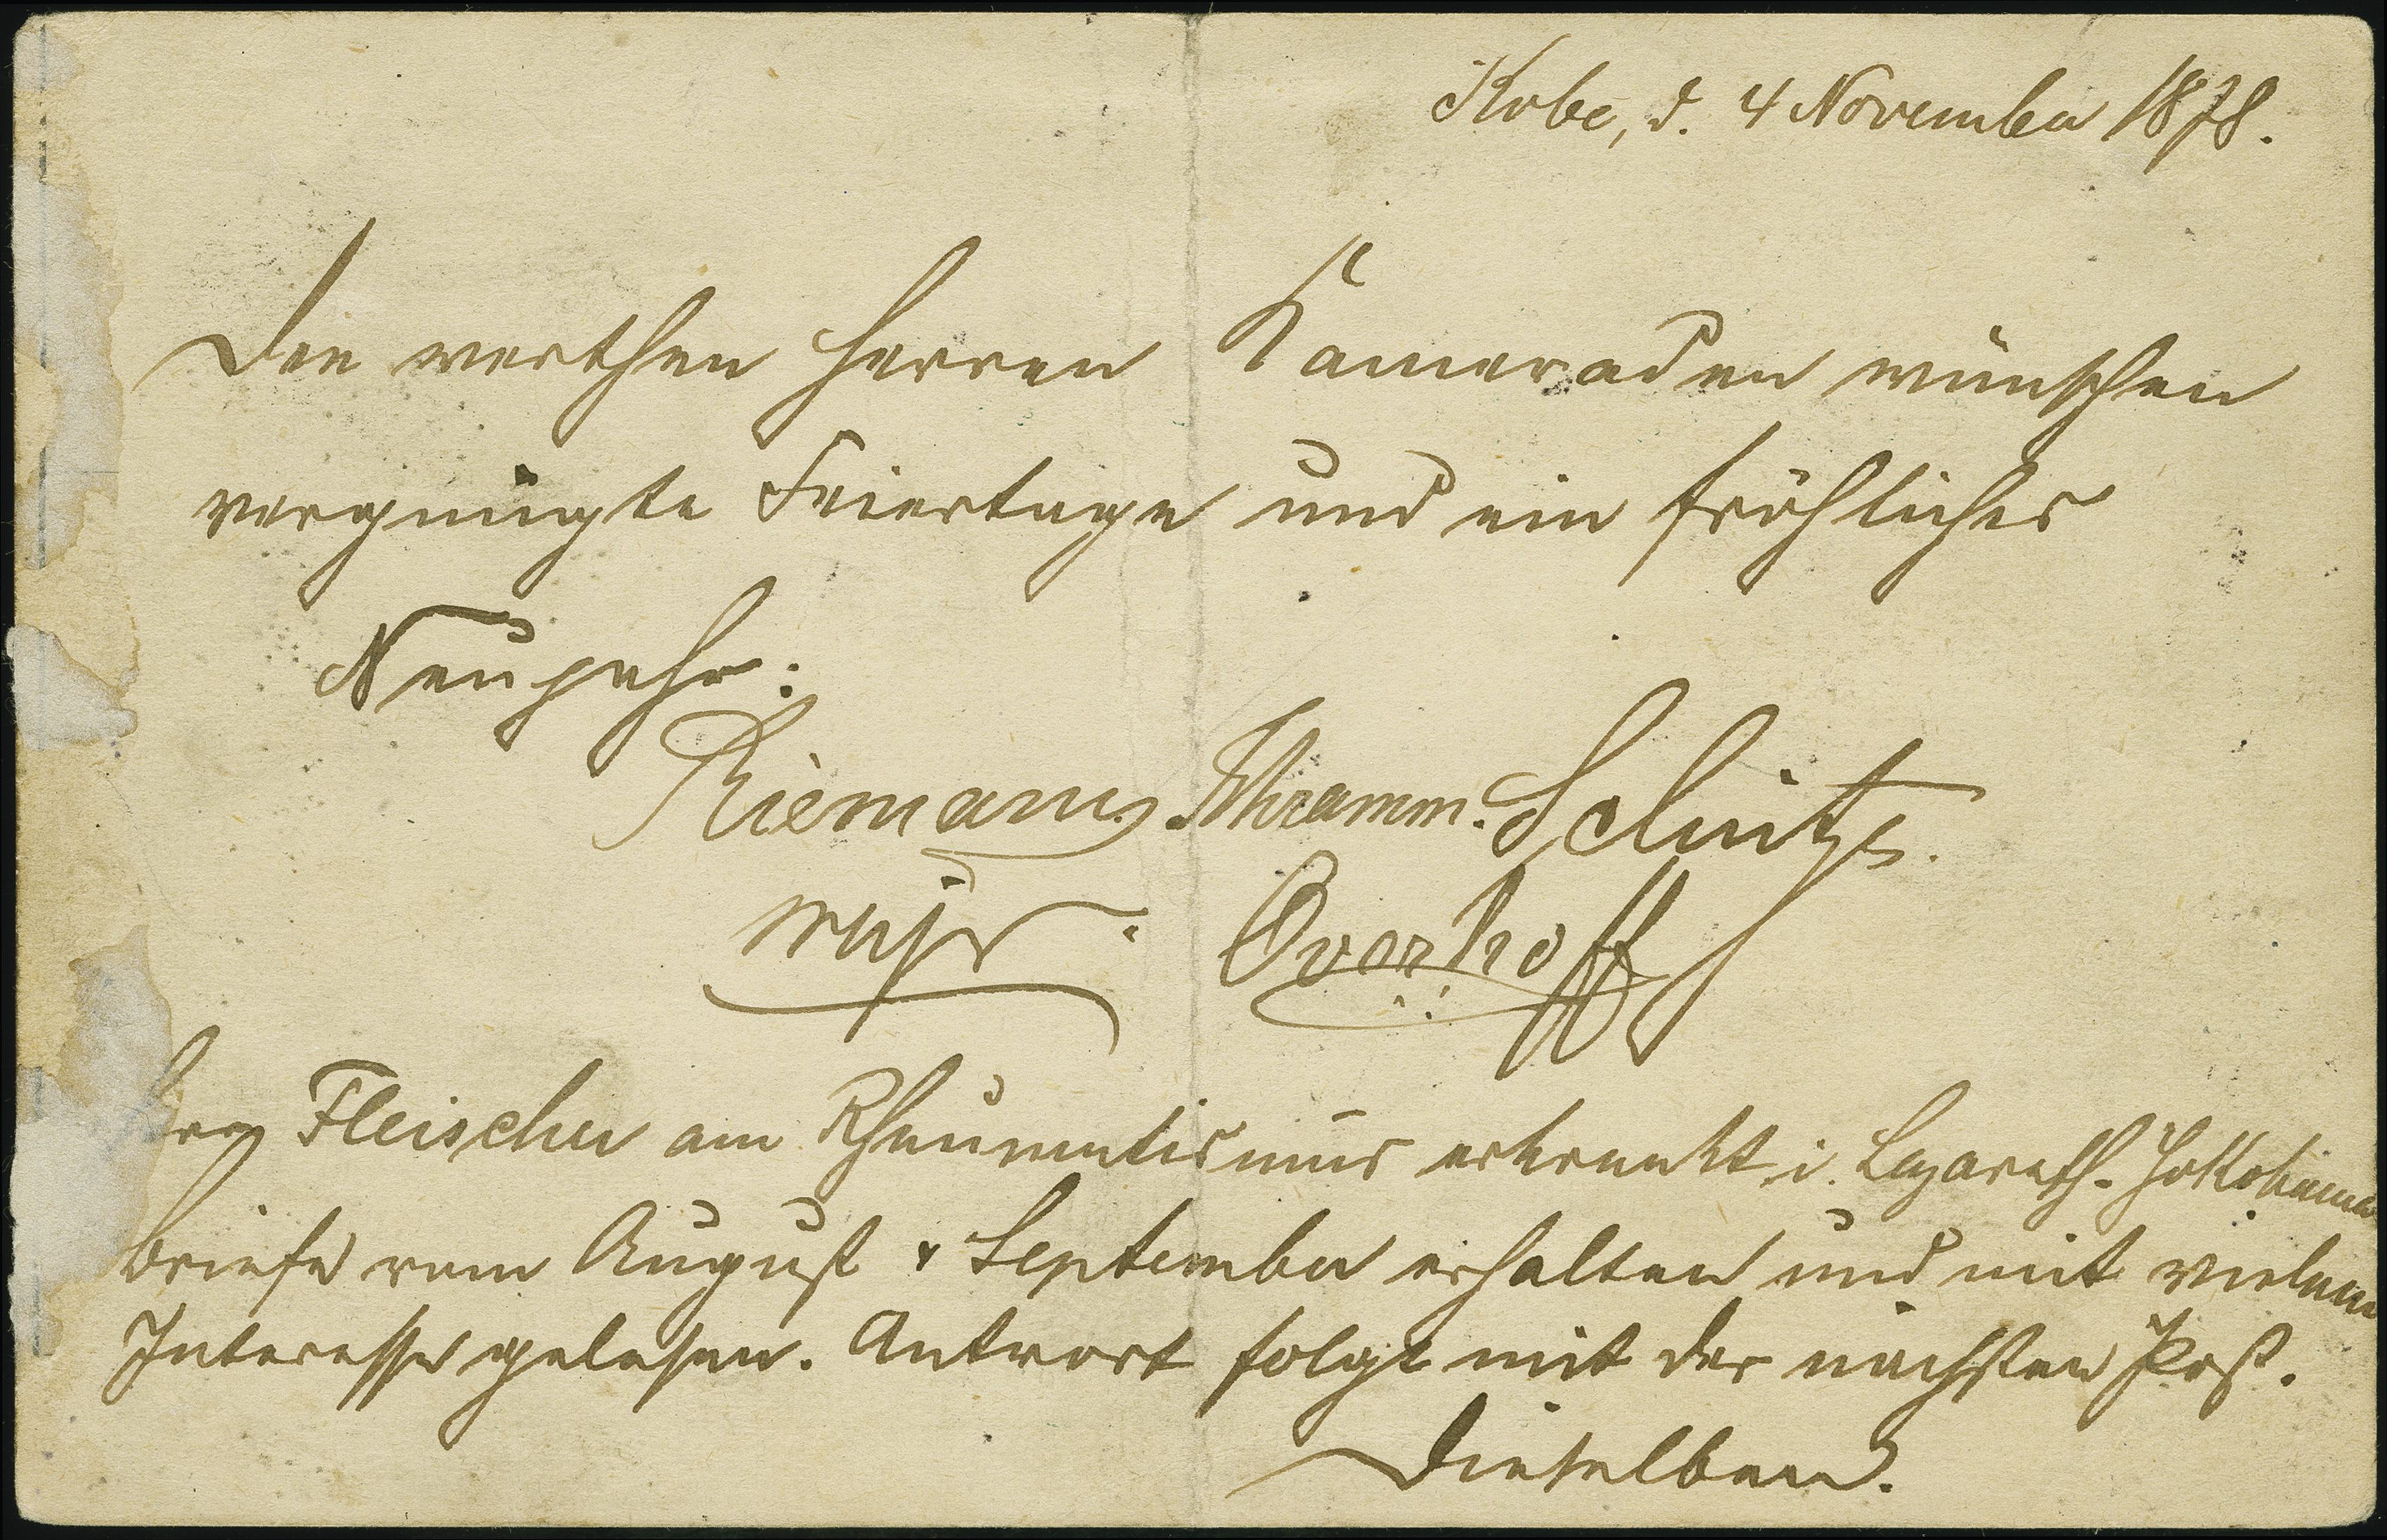 Kobe, d. 4 November 1878.
Den werthen Herren Kameraden wünschen
vergnügte Feiertage und ein fröhliches
Neujahr:
Riemann. Thramm. Schütze.
Overhoff
Fleischer am Rheumatismus erkrankt i. Lazareth. Jokohama
Briefe vom August & September erhalten und mit vielem
Interesse gelesen. Antwort folgt mit der nächsten Post.
Dieselben.